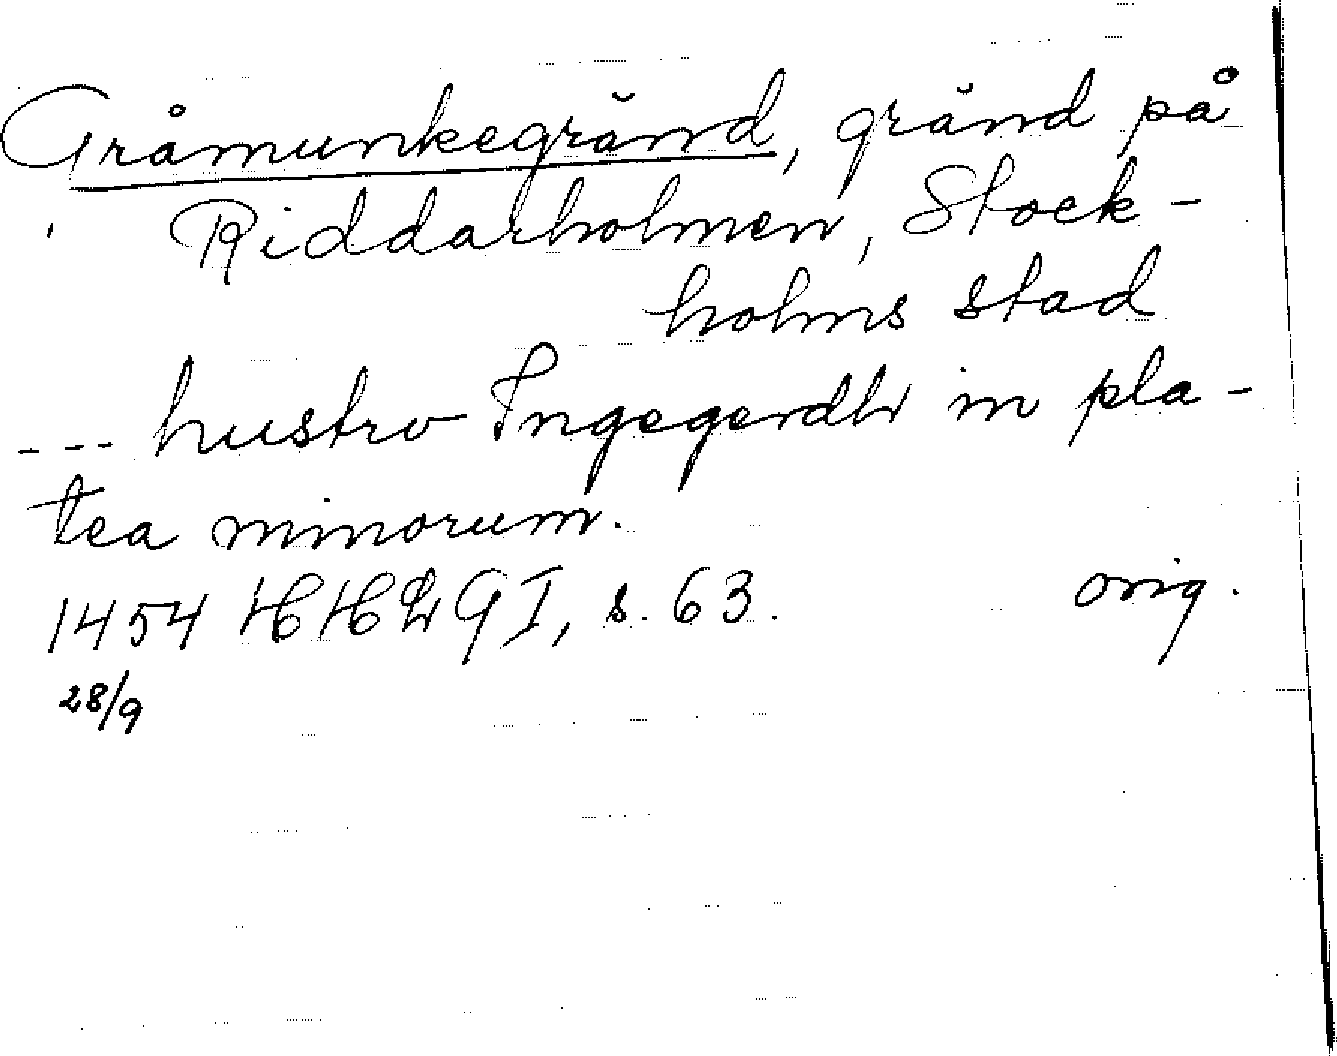 Gråmunkegränd, gränd på
Riddarholmen, Stock-
holms stad
--- hustro Ingegerdh in pla-
tea minorum.
1454 HHLG I, s. 63. orig.
28/9